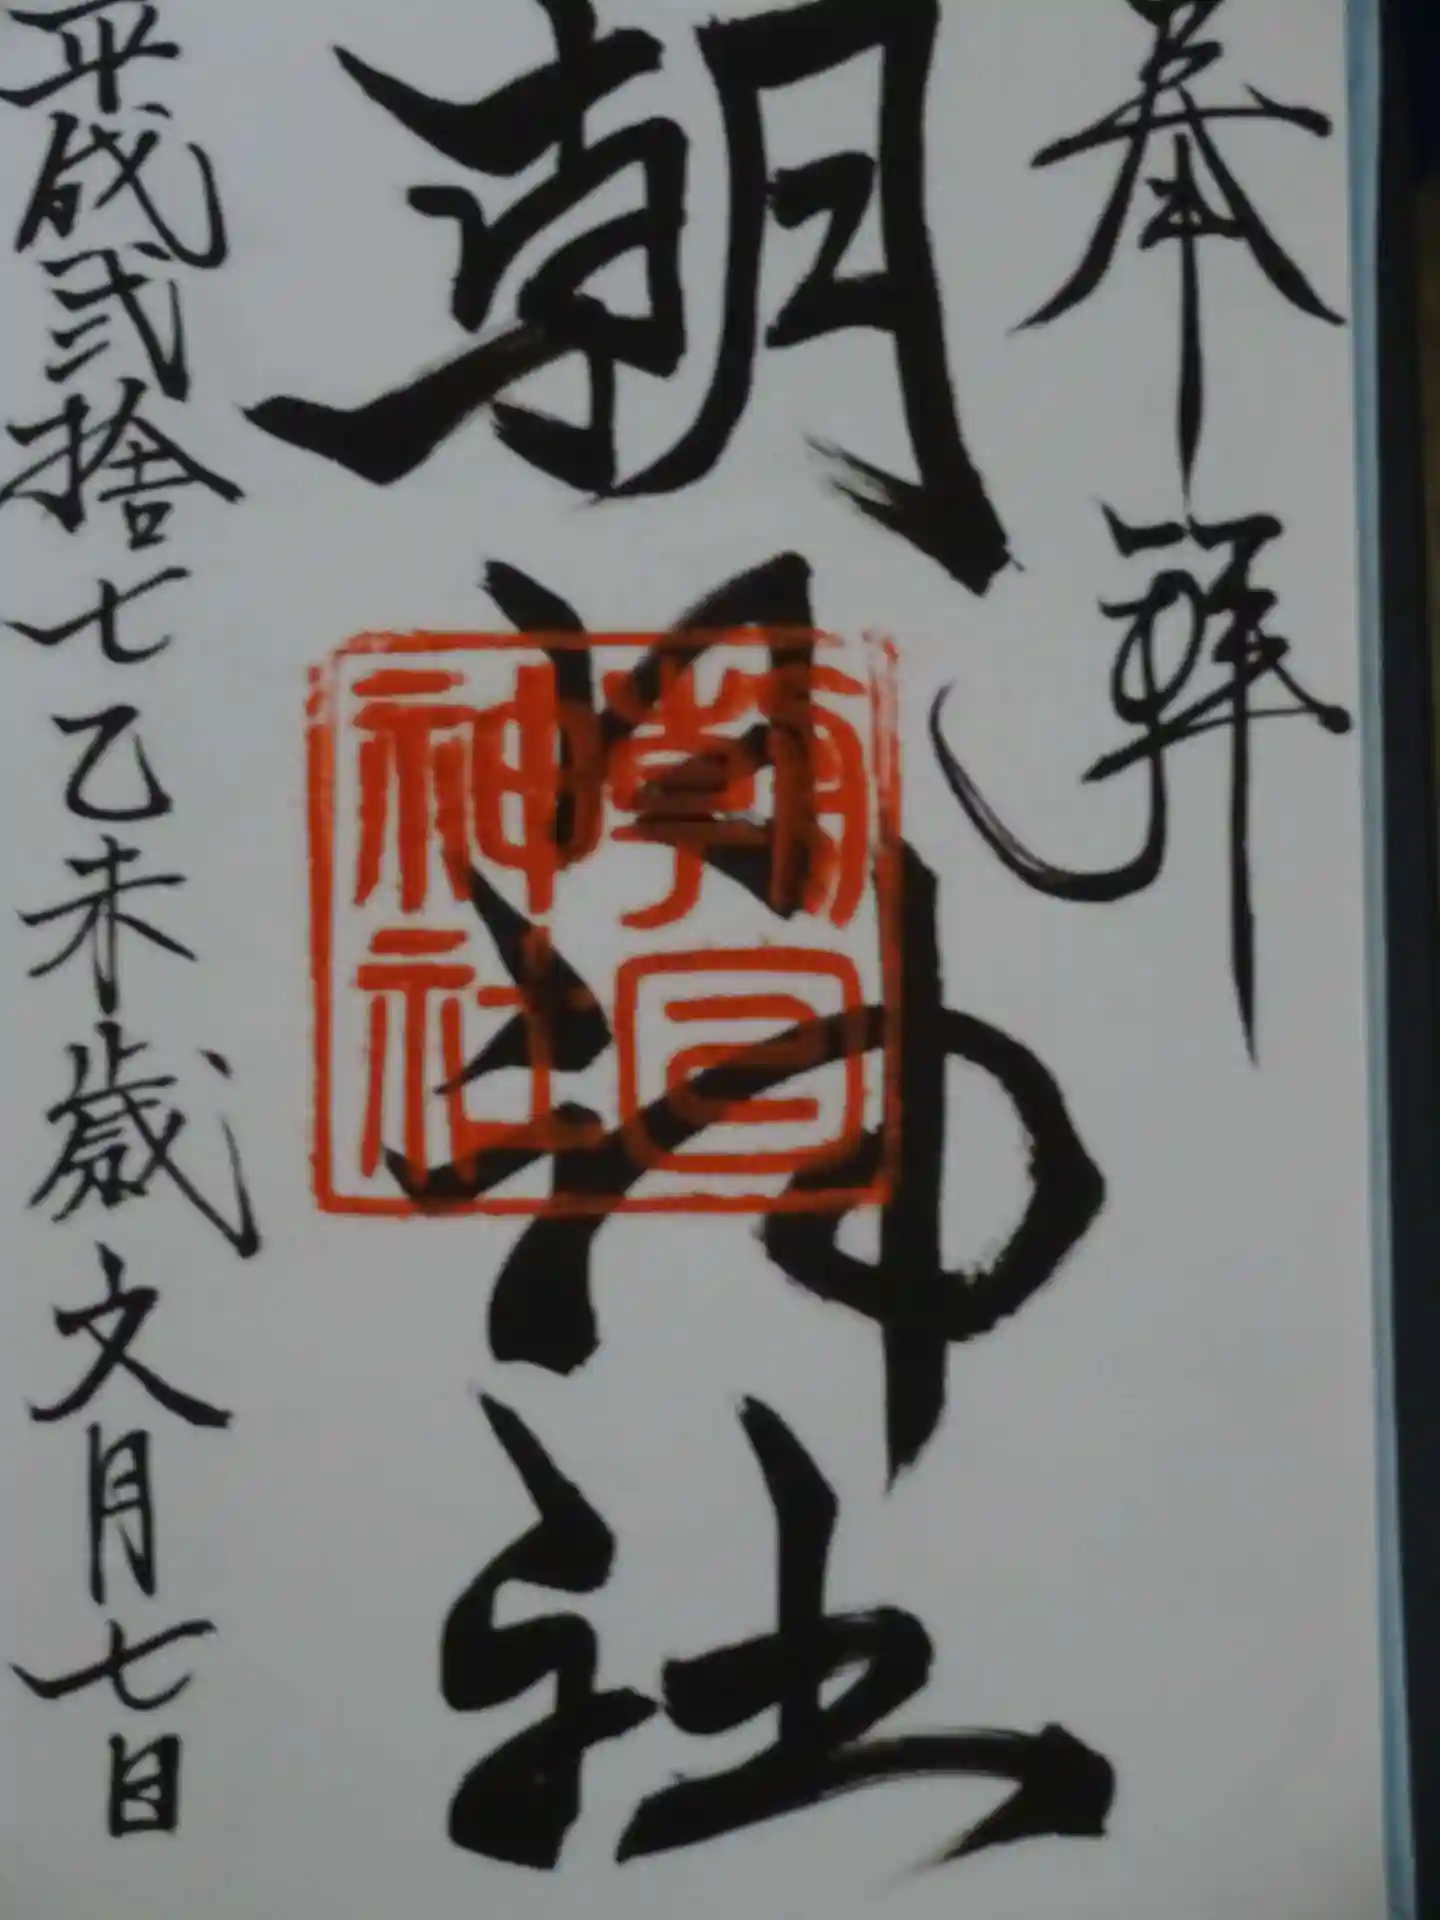 奉拜
朝日神社
朝日神社
平成弐拾七乙未歳文月七日